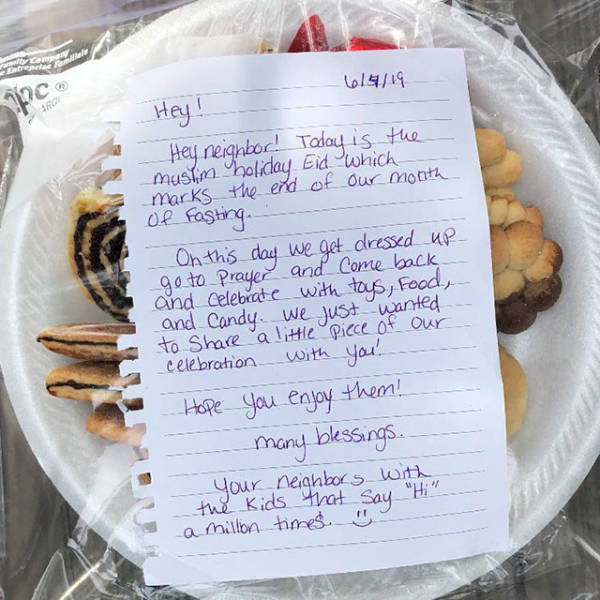 6/4/19
Hey!
Hey neighbor! Today is the
muslim holiday Eid which
marks the end of our month
of Fasting.
On this day we get dressed up
go to Prayer and Come back
and celebrate with toys, Food,
and Candy. We just wanted
to Share a little Piece of our
celebration with you!
Hope you enjoy them!
many blessings.
Your neighbors with
the kids that Say "Hi"
a million times.